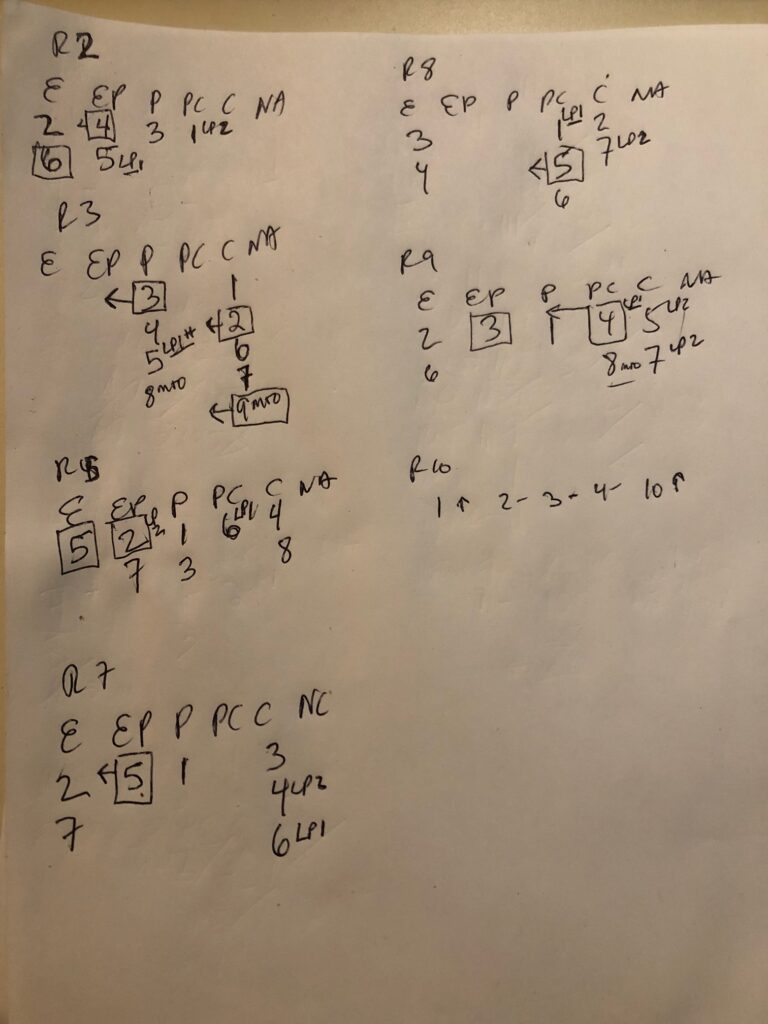 R2
E EP P PC C NA
2 ←4 3 1 LP2
6 5 LP1
R3
E EP P PC C NA
←3 1
4 ←2
5 LP1* 6
8 MTO 7
←9 MTO
R5
E EP P PC C NA
5 2 LP2 1 6 LP1 4
7 3 8
R7
E EP P PC C NC
2 ←5 1 3
7 4 LP2
6 LP1
R8
E EP P PC C NA
3 1 LP1 2
4 ←5 7 LP2
6
R9
E EP P PC C NA
2 3 1 ←4 LP1 5 LP2
6 8 MTO 7 LP2
R10
1↑ 2- 3- 4- 10↑